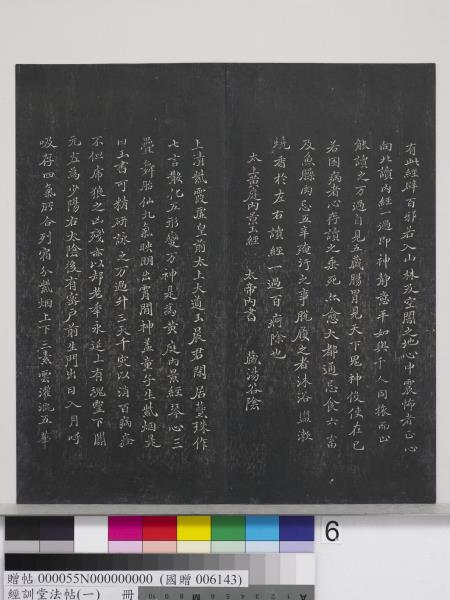 有此經辟百邪若入山林及空闇之地心中震怖者正心
向北讀內經一過即神靜意平如與千人同旅而止
能讀之万過自見五藏腸胃見天下鬼神役使在已
若困病者心存讀之垂死亦愈大都通忌食六畜
及魚臊肉忌五辛淹汙之事脫履之者沐浴盥漱
燒香於左右讀經一過百病除也
太上黃庭內景玉經 太帝內書 暘湯谷陰
上清紫霞虛皇前太上大道玉晨君閑居蘂珠作
七言散化五形變万神是為黃庭內景經琴心三
疊舞胎仙九氣映明出霄間神蓋童子生紫烟是
曰玉書可精研詠之万過升三天千灾以消百病痊
不但虎狼之凶殘亦以却老年永延上有魂靈下關
元左為少陽右太陰後有密戶前生門出日入月呼
吸存四氣所合列宿分紫烟上下三素雲灌溉五華
6
贈帖 000055N000000000 (國贈 006143)
經訓堂法帖(一) 冊